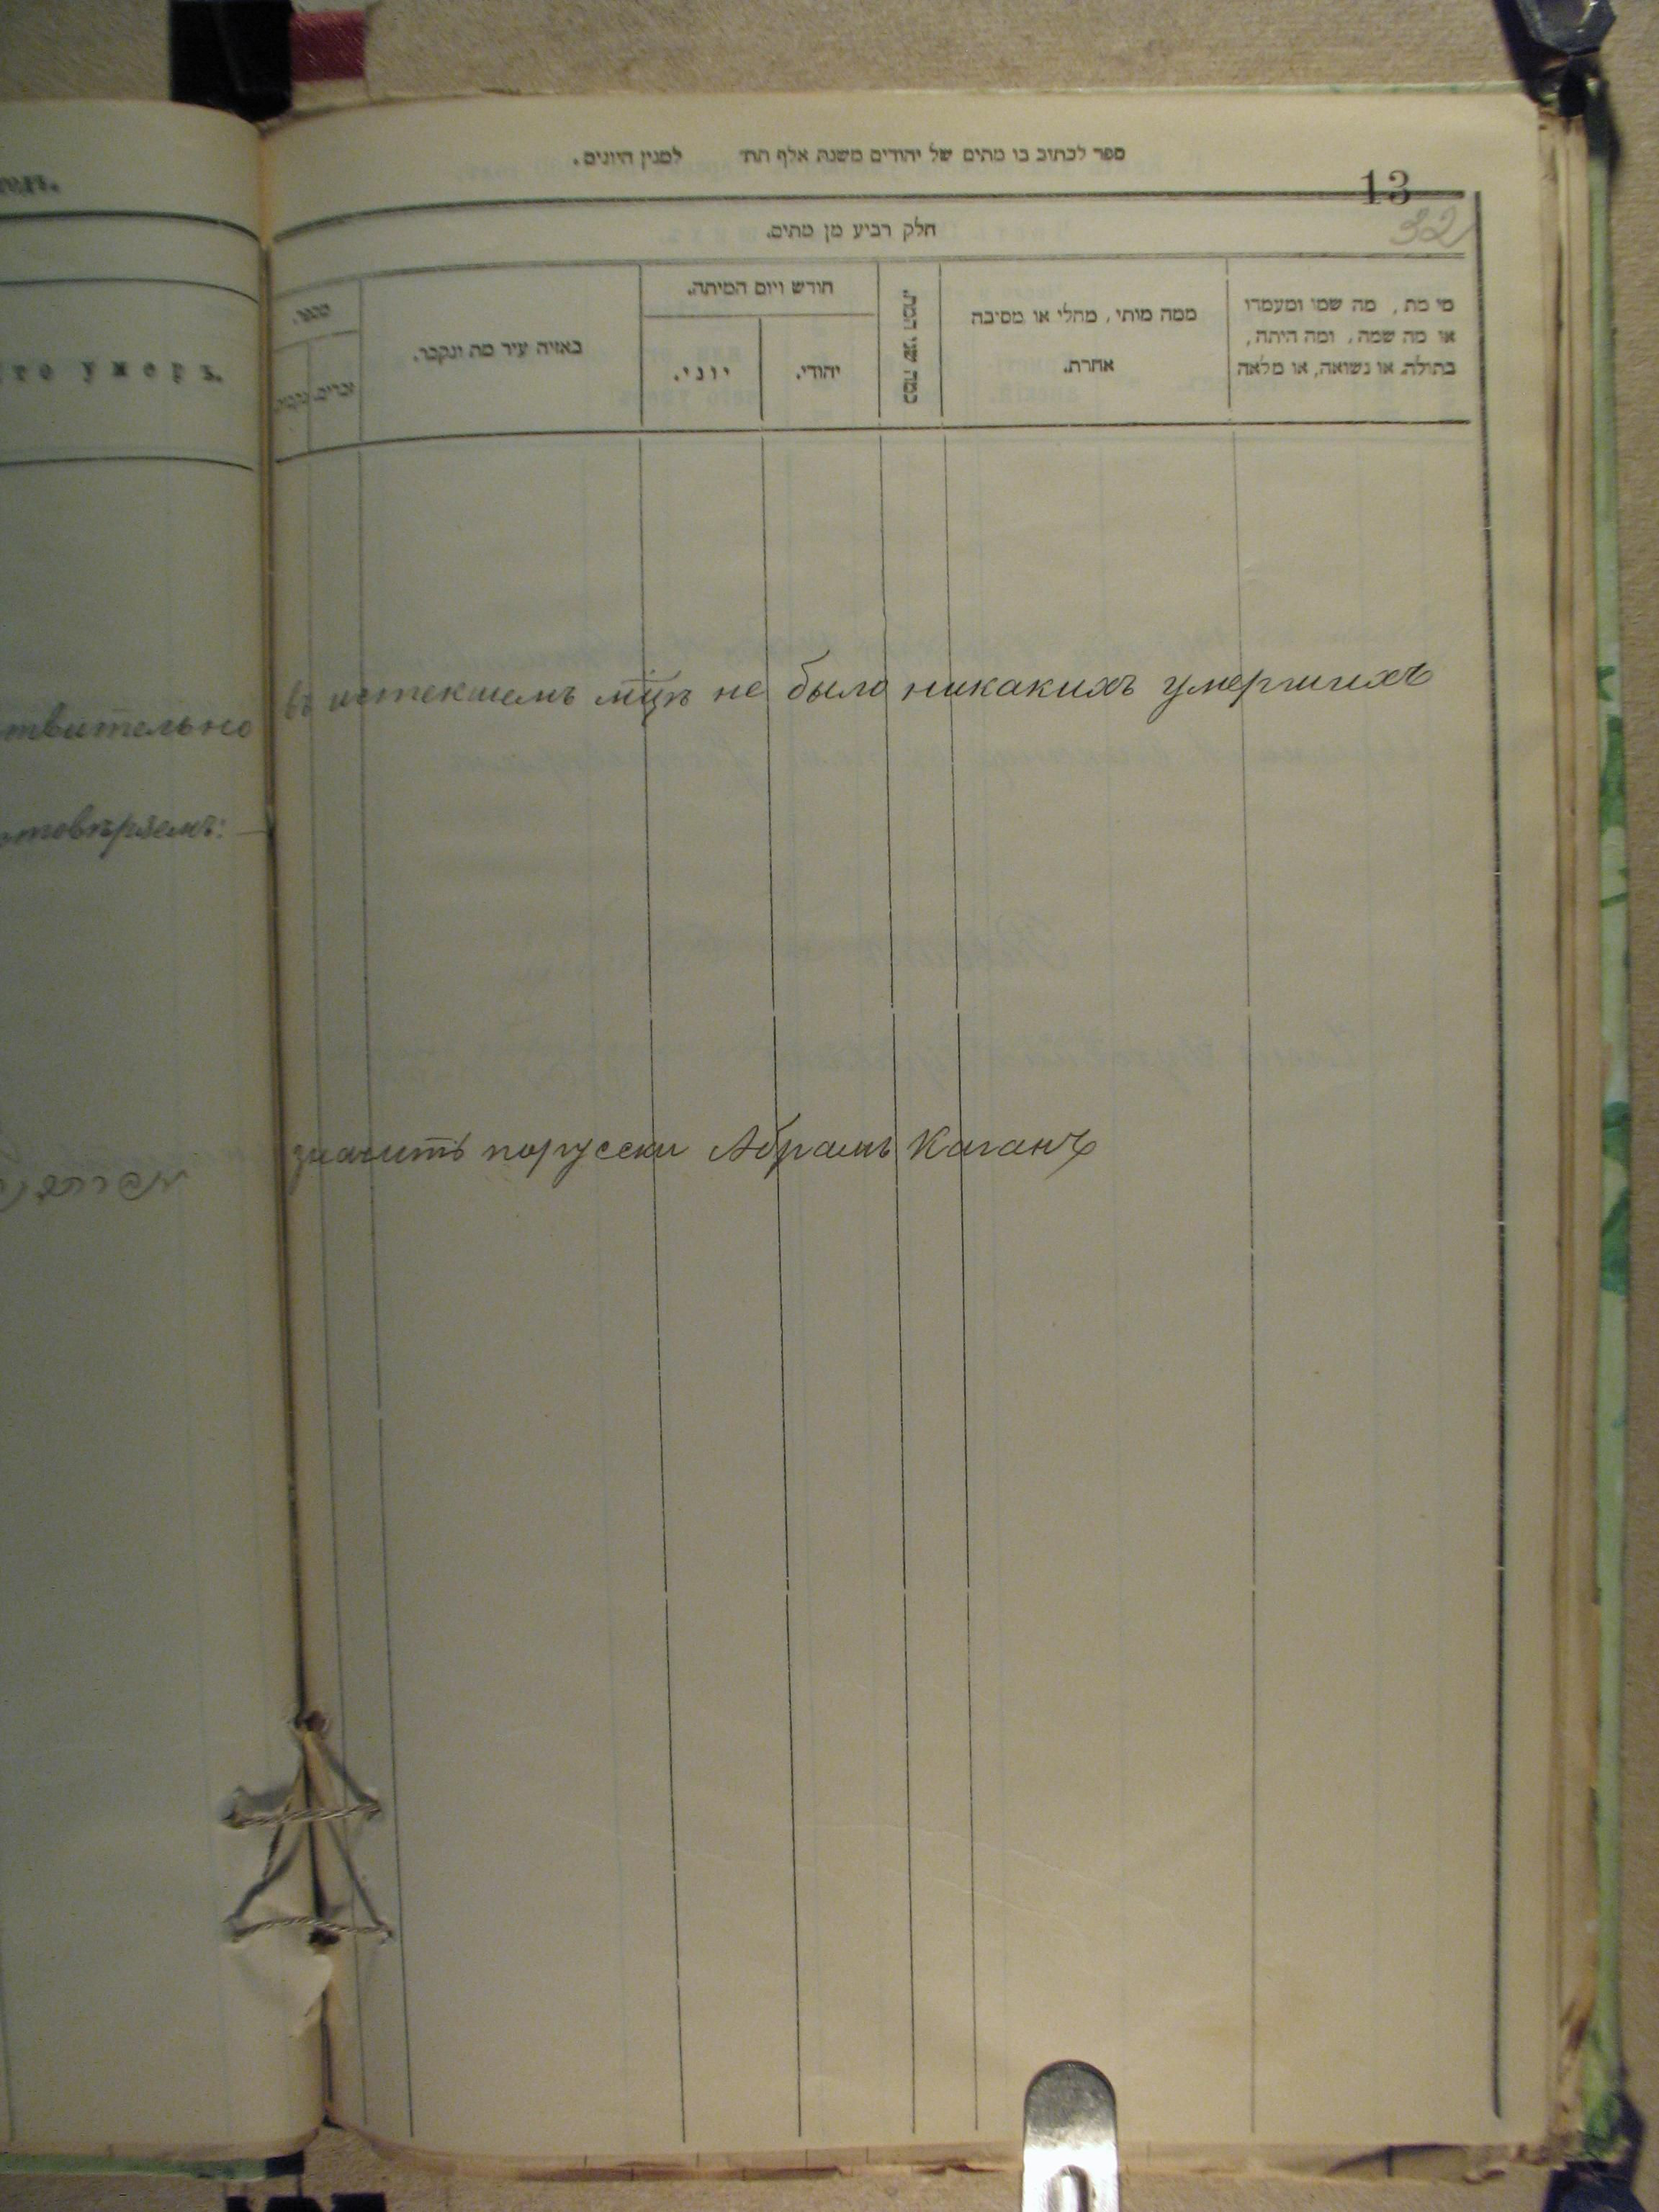 ספר לכתוב בו מתים של יהודים משנת אלף תת למנין היונים.
13
32
חלק רביע מן מתים.
מי מת, מה שמו ומעמדו
או מה שמה, ומה היתה,
בתולה או נשואה, או מלאה
ממה מותי, מחלי או מסיבה
אחרת.
כמה שני המת.
חודש ויום המיתה.
יהודי.
יוני.
באיזה עיר מת ונקבר.
מספר.
זכרים.
נקבות
то умеръ.
твительно
въ истекшемъ мцѣ не было никакихъ умершихъ
товѣряемъ:
значитъ порусски Абрамъ Каганъ